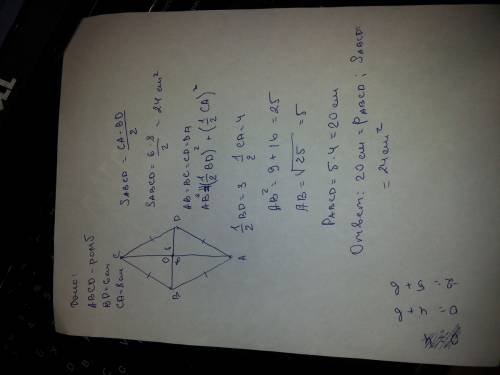 Дано:
ABCD - ромб
BD = 6 см
CA = 8 см
C
B
O
D
A
8
6
S ABCD = CA · BD / 2
S ABCD = 6 · 8 / 2 = 24 см²
AB = BC = CD = DA
AB² = (1/2 BD)² + (1/2 CA)²
1/2 BD = 3 1/2 CA = 4
AB² = 9 + 16 = 25
AB = √25 = 5
P ABCD = 5 · 4 = 20 см
Ответ: 20 см = P ABCD ; S ABCD =
= 24 см²